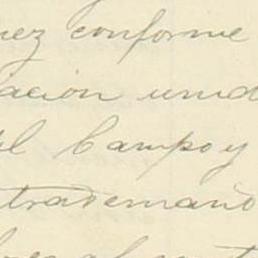 nez conforme
ación unid
el Campo y
trademano